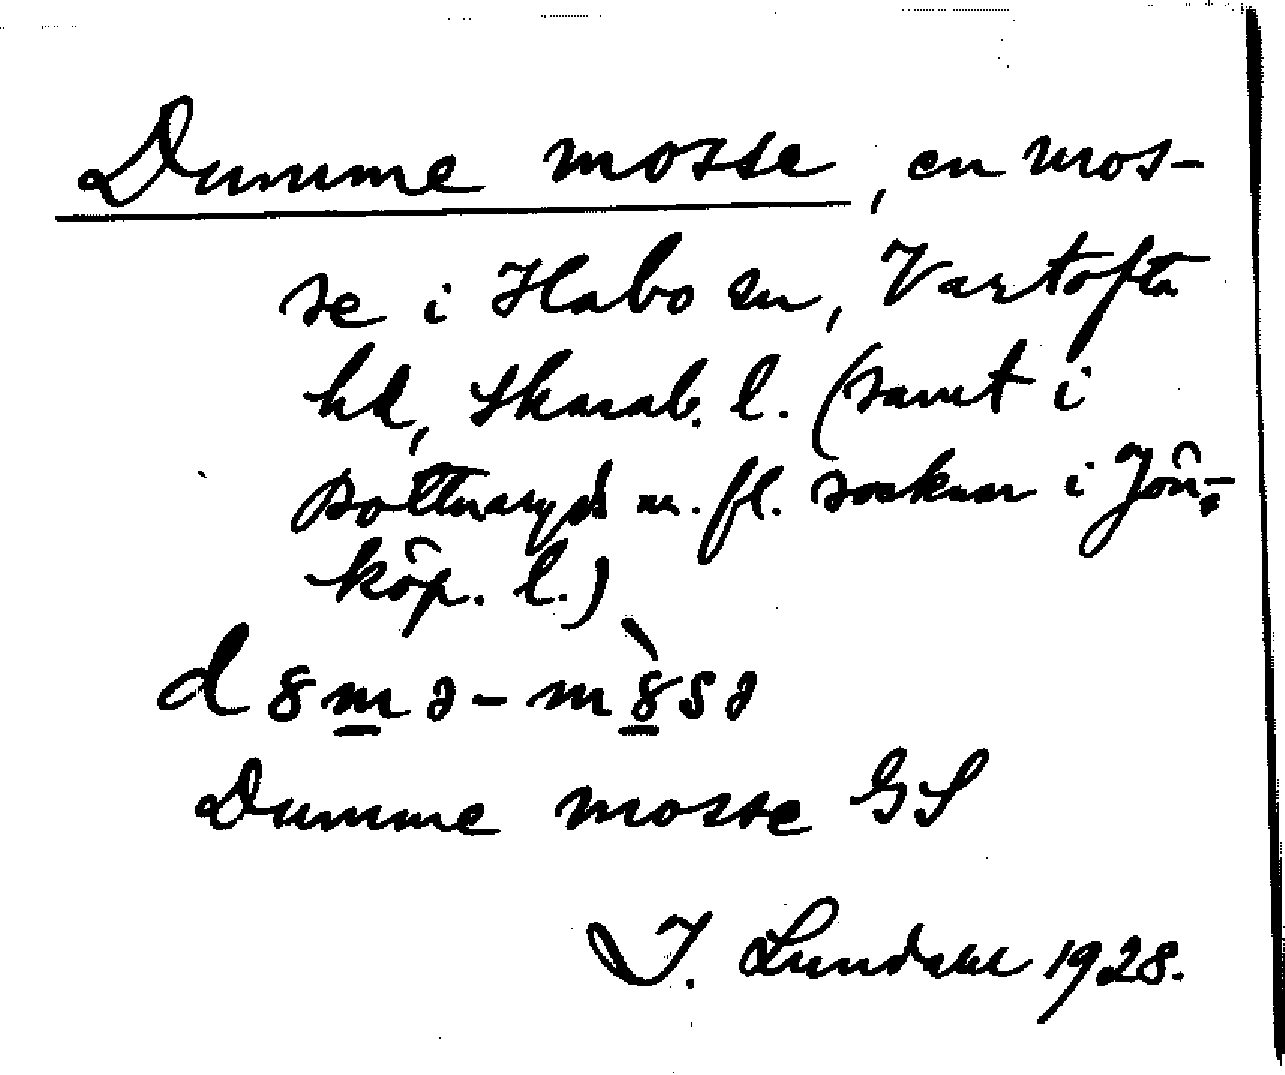 Dumme mosse, en mos-
se i Habo sn, Vartofta
hd, Skarab. l. (samt i
Bottnaryd m. fl. socknar i Jön-
köp. l.)
d8mə-m8̀sə
Dumme mosse GS
I. Lundahl 1928.